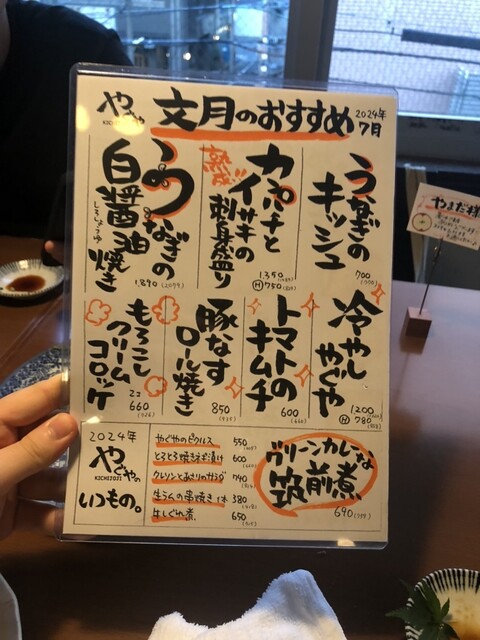 やぐや
KICHIJOJI
文月のおすすめ
2024年
7月
うなぎの
キッシュ
700
(770)
カンパチと
イサキの
刺身盛り
1,350
H 750
うなぎの
白醤油
しろしょうゆ
焼き
1,890 (2079)
冷やし
やぐや
1,200
H 780
トマトの
キムチ
600
(660)
豚なす
ロール焼き
850
(935)
もろこし
クリーム
コロッケ
2コ
660
(726)
2024年
やぐやの
KICHIJOJI
いつもの。
やぐやのピクルス 550
とろとろ焼きねぎ漬け 600
クレソンとあさりのサラダ 740
生ラムの串焼き 1本 380
牛しぐれ煮 650
グリーンカレーな
筑前煮
690 (759)
やまだ様